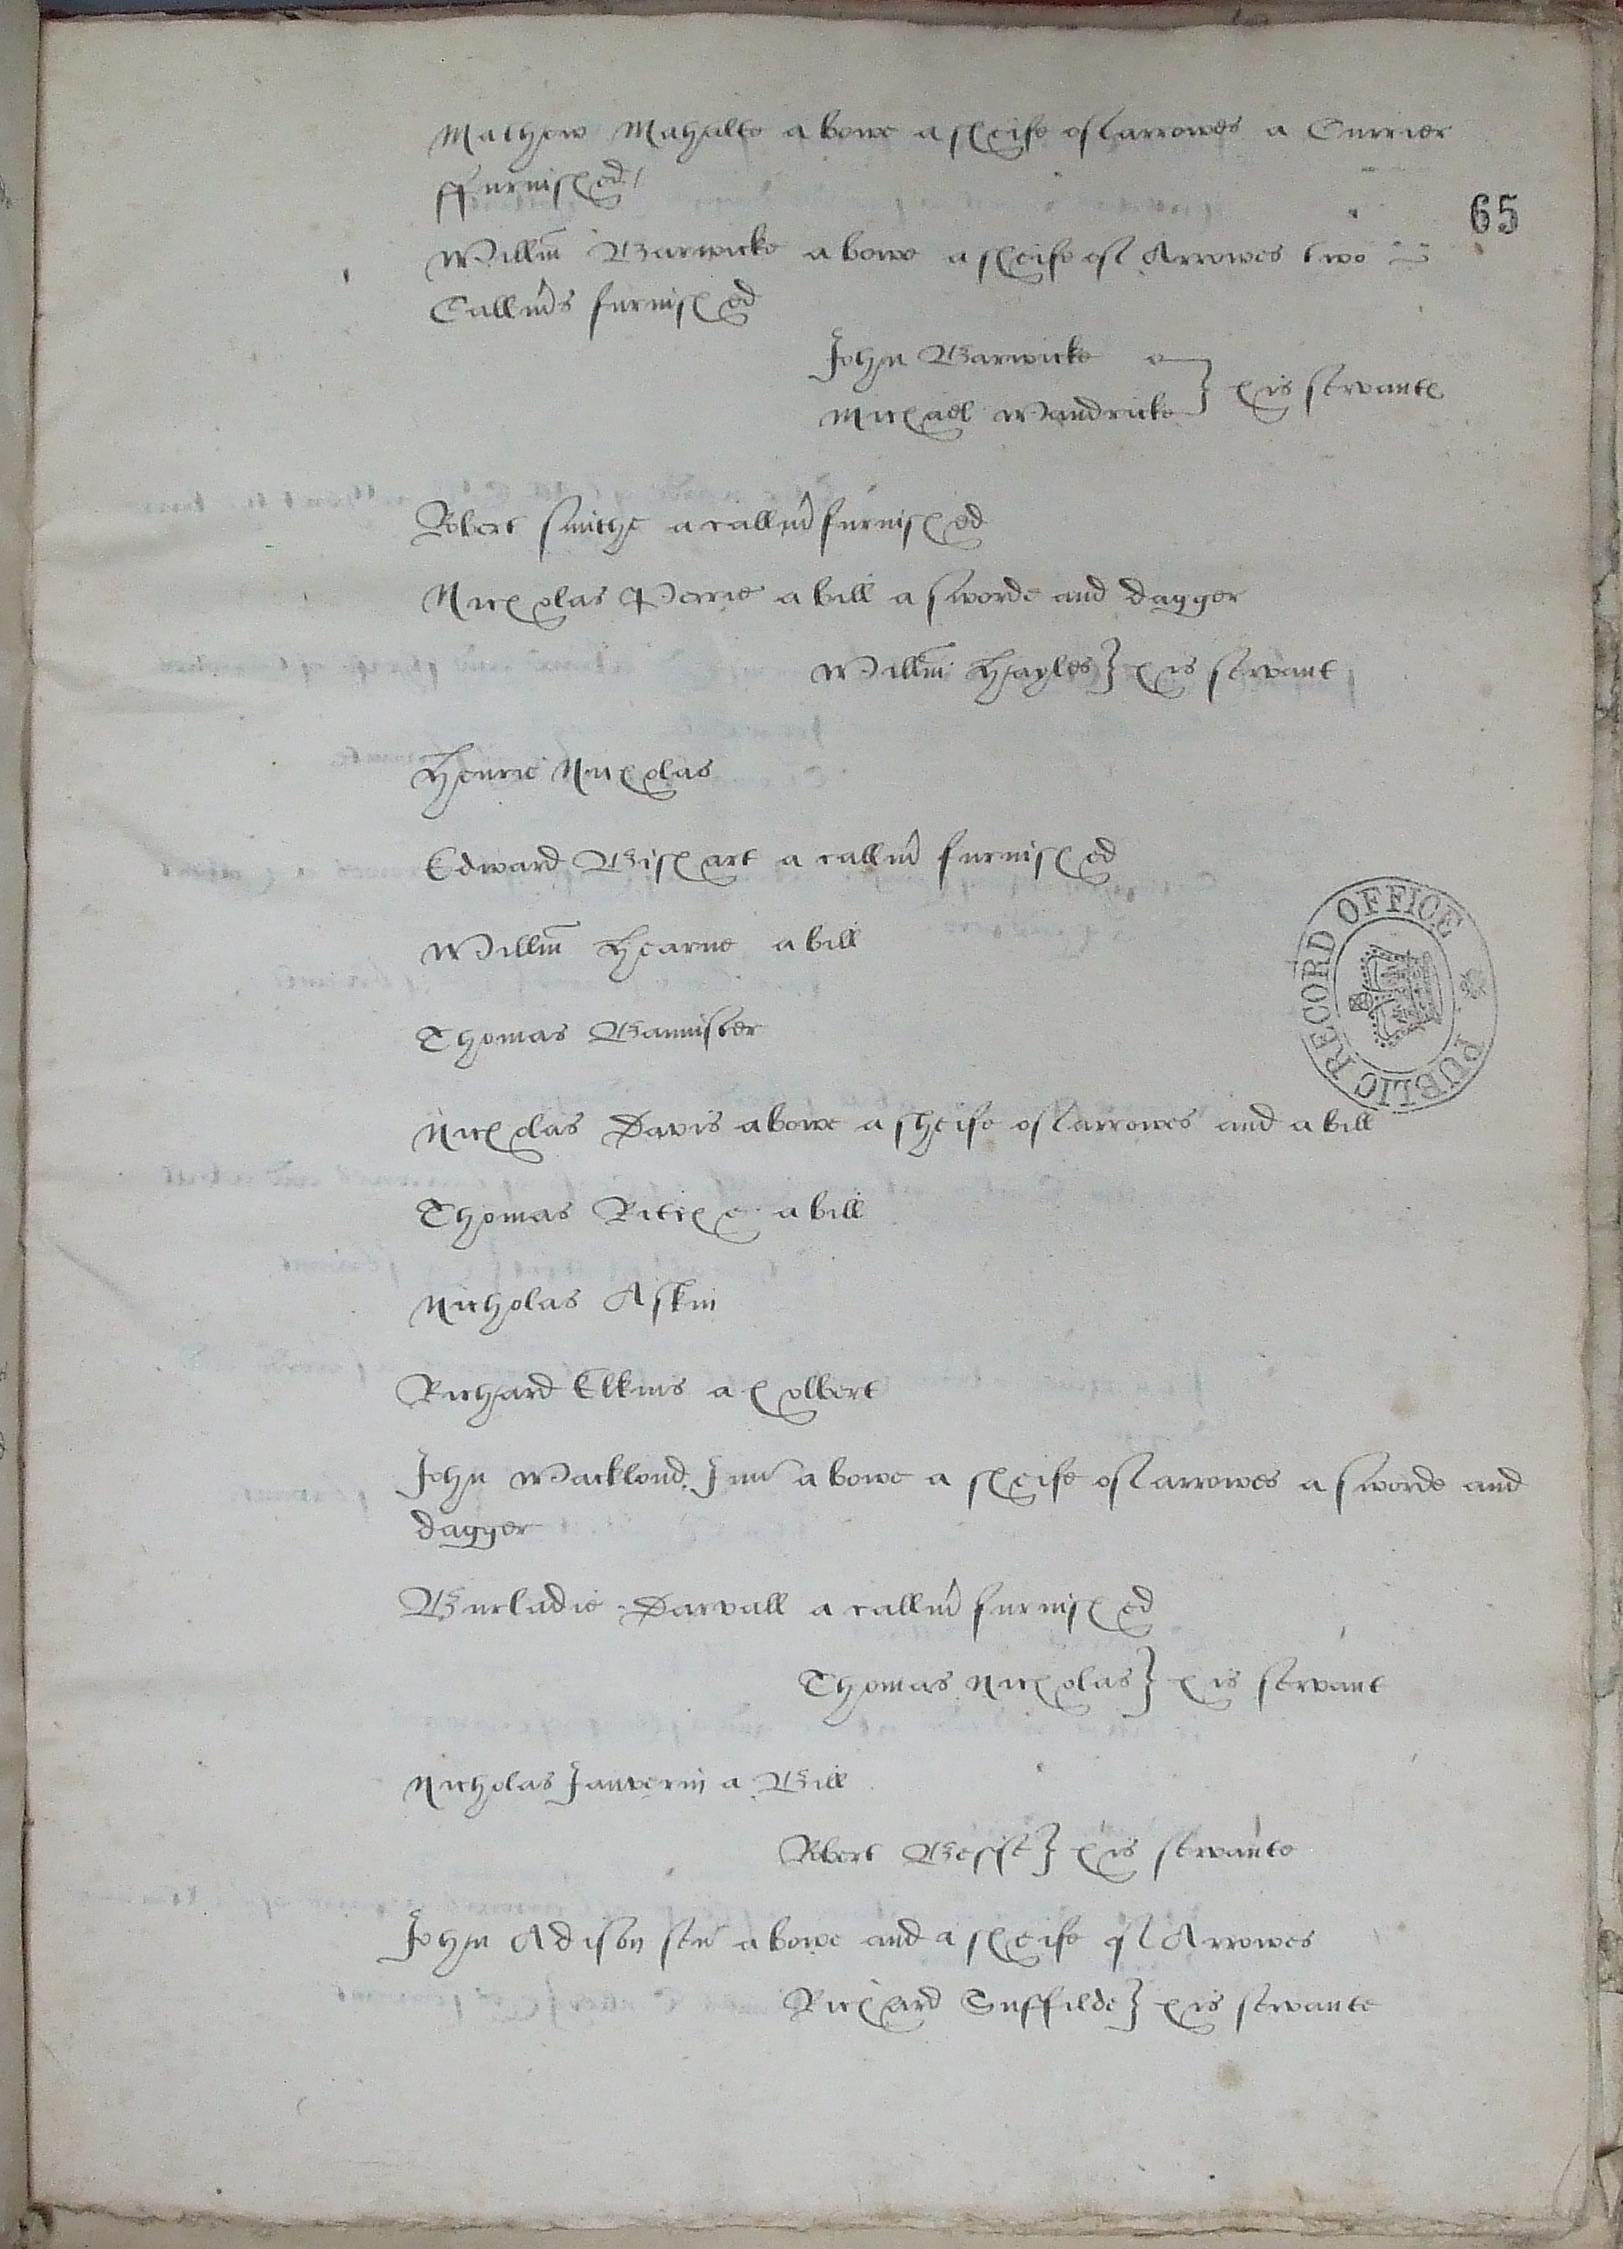 Mathew Mahalte a bowe a sheife of arrowes a Currier
ffurnished /
65
Willm Barwicke a bowe a sheife of Arrowes two
Callius furnished
John Barwicke
Michaell Wandricke } his servante
Robert Smithe a calliu furnished
Nicholas Perrie a bill a sworde and dagger
Willm Hayles } his servant
Henrie Nicholas
Edward Bishart a calliu furnished
Willm Hearne a bill
Thomas Bannister
Nicholas Davis a bowe a sheife of arrowes and a bill
Thomas Ritche a bill
Nicholas Askin
Richard Elkins a holbert
John Wacklond Junr a bowe a sheife of arrowes a sworde and
dagger
Burladie Darvall a calliu furnished
Thomas Nicholas } his servant
Nicholas Janverin a Bill
Robert Besse } his servante
John Adison senr a bowe and a sheife of Arrowes
Richard Suffilde } his servante
PUBLIC RECORD OFFICE